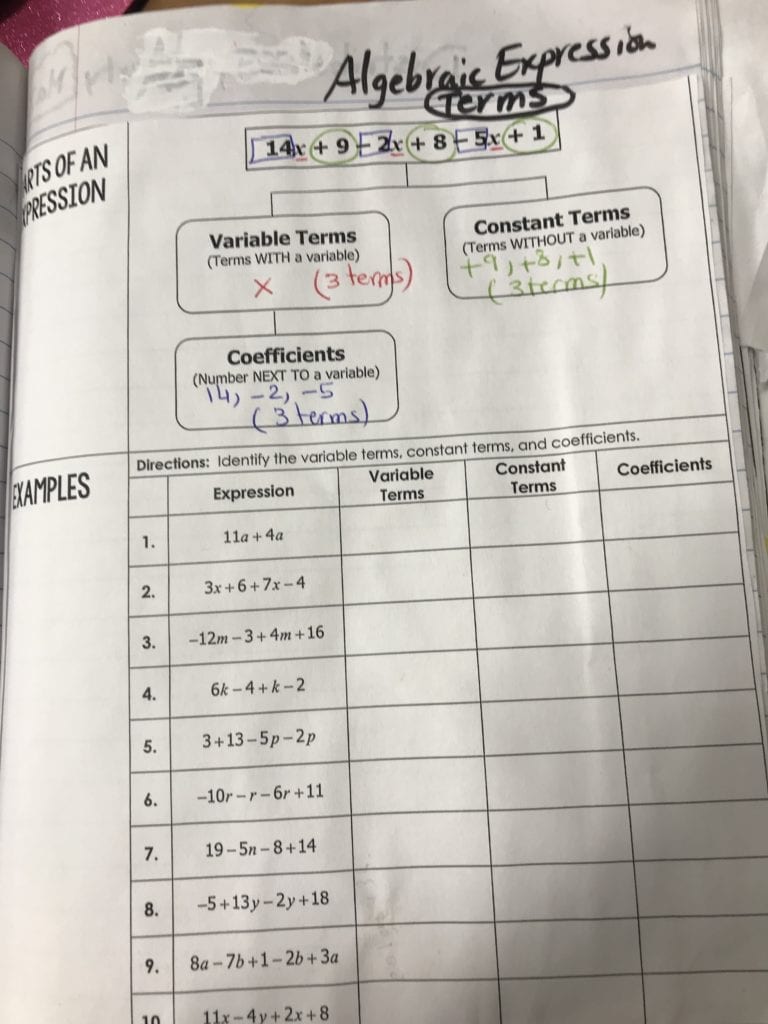 Algebraic Expression
Terms
ARTS OF AN
PRESSION
14x + 9 - 2x + 8 - 5x + 1
Variable Terms
(Terms WITH a variable)
x (3 terms)
Constant Terms
(Terms WITHOUT a variable)
+9, +8, +1
(3 terms)
Coefficients
(Number NEXT TO a variable)
14, -2, -5
(3 terms)
EXAMPLES
Directions: Identify the variable terms, constant terms, and coefficients.
Expression Variable Terms Constant Terms Coefficients
1. 11a + 4a
2. 3x + 6 + 7x - 4
3. -12m - 3 + 4m + 16
4. 6k - 4 + k - 2
5. 3 + 13 - 5p - 2p
6. -10r - r - 6r + 11
7. 19 - 5n - 8 + 14
8. -5 + 13y - 2y + 18
9. 8a - 7b + 1 - 2b + 3a
10 11x - 4y + 2x + 8